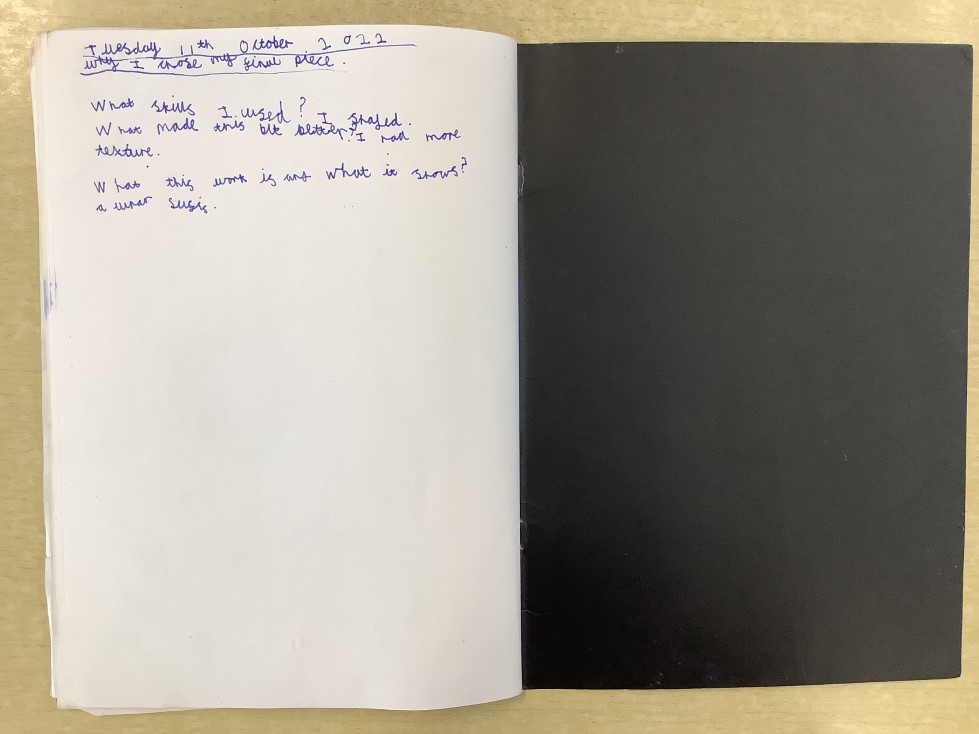 Tuesday 11th October 2022
why I chose my final piece.
What skills I used? I shajed.
What made this bit better? I had more
texture.
What this work is and what it shows?
a